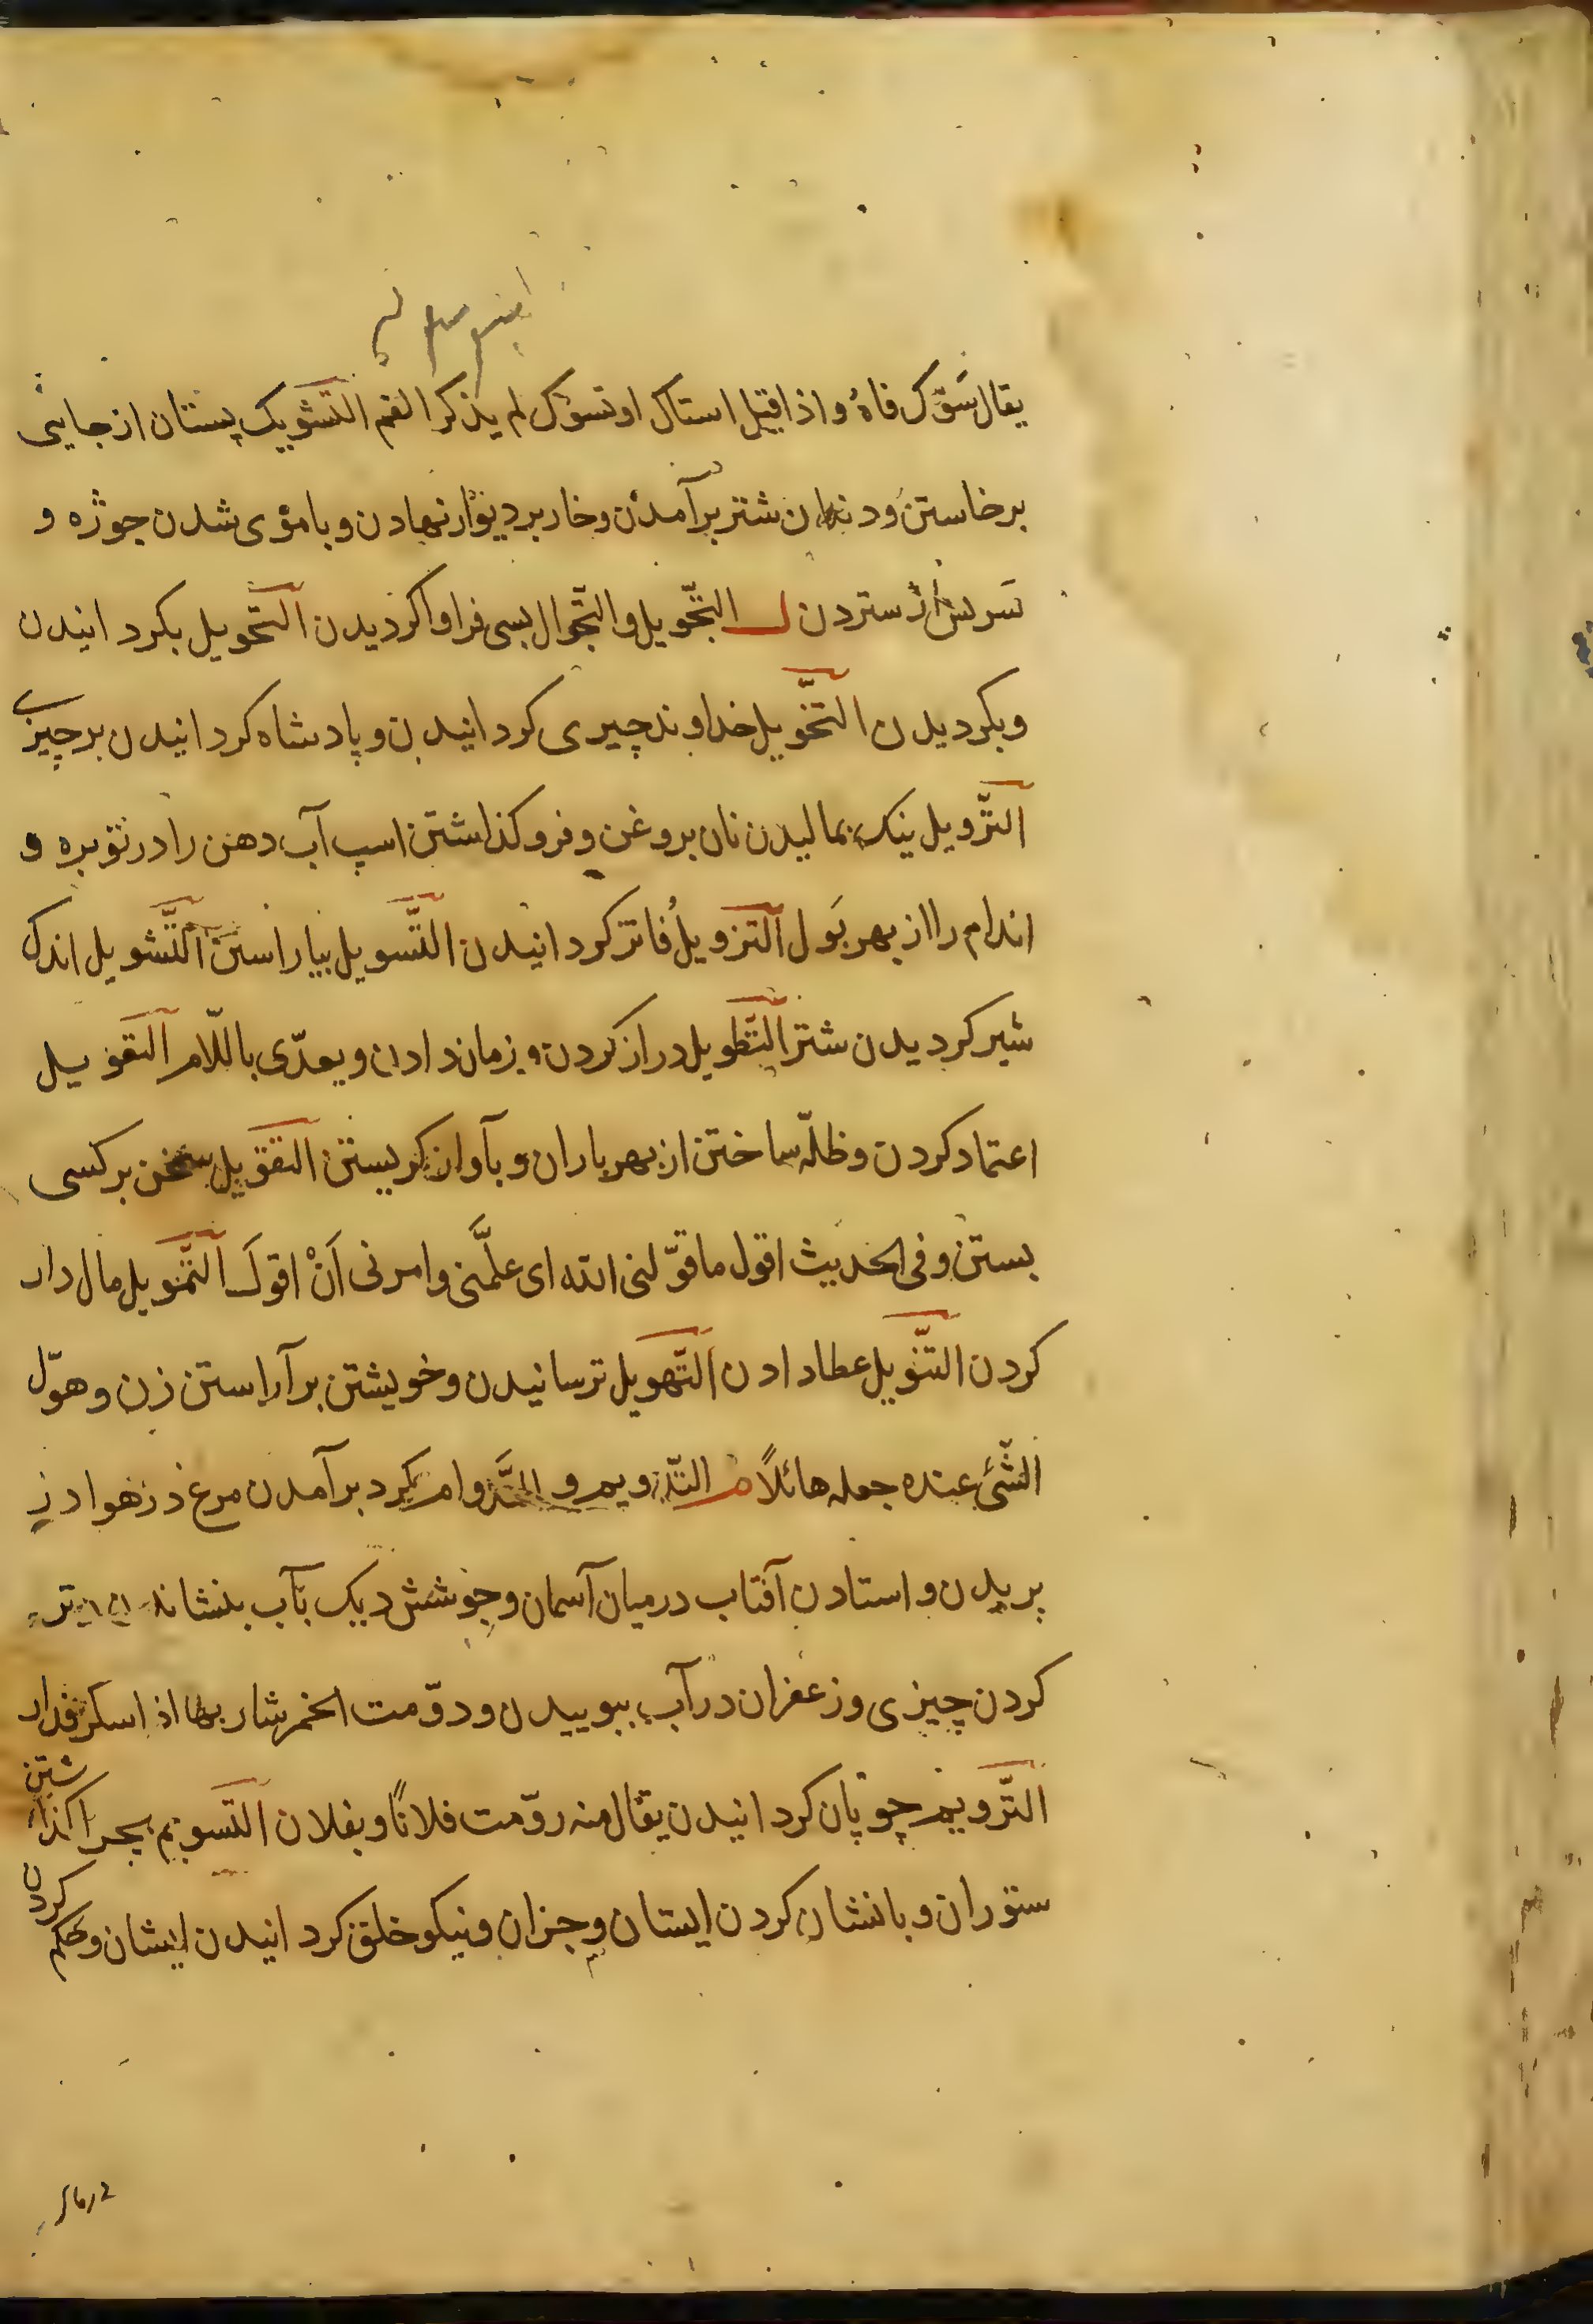 یقال سَوَّک فاهُ و اذا قیل استاک او تسوّک لم یذکر الفم التشویک پستان از جایی
برخاستن و دندان شتر برآمدن و خار بر دیوار نهادن و با موی شدن جوژه و
سرش از ستردن ل التجّویل و التجّوال بسی فراوا کردیدن التّحویل بکردانیدن
و بکردیدن التخّویل خداوند چیزی کردانیدن و پادشاه کردانیدن بر چیزی
التّرویل نیک بمالیدن نان بروغن و فرو کذاشتن اسپ آب دهن را در توبره و
اندام را از بهر بَول التزویلُ فاتر کردانیدن التّسویل بیاراستن التَّشویل اندک
شیر کردیدن شتر التَّطویل دراز کردن و زمان دادن و یعدّی باللّام التعویل
اعتماد کردن و ظلّه ساختن از بهر باران و بآواز کریستن التقویل سخن بر کسی
بستن و فی الحدیث اقول ما قوّلنی الله ای علَّمنی و امرنی اَنْ اقولَ التّمویل مال دار
کردن التنّویل عطا دادن التّهویل ترسانیدن و خویشتن برآراستن زن و هوّل
الشّئ عنده جعله هائلاً م التدّویم و التَّدوام کرد برآمدن مرغ در هوا در
پریدن و استادن آفتاب در میان آسمان و جوشش دیک بآب بنشاندن و تر
کردن چیزی و زعفران در آب ببوییدن و دوّمت الخمر شاربها اذا سکر فدار
التّرویم چوپان کردانیدن یقال منه روّمت فلانًا و بفلان التسویم بچرا کذاشتن
ستوران و بانشان کردن ایشان و جزان و نیکو خلق کردانیدن ایشان و حکم کردن